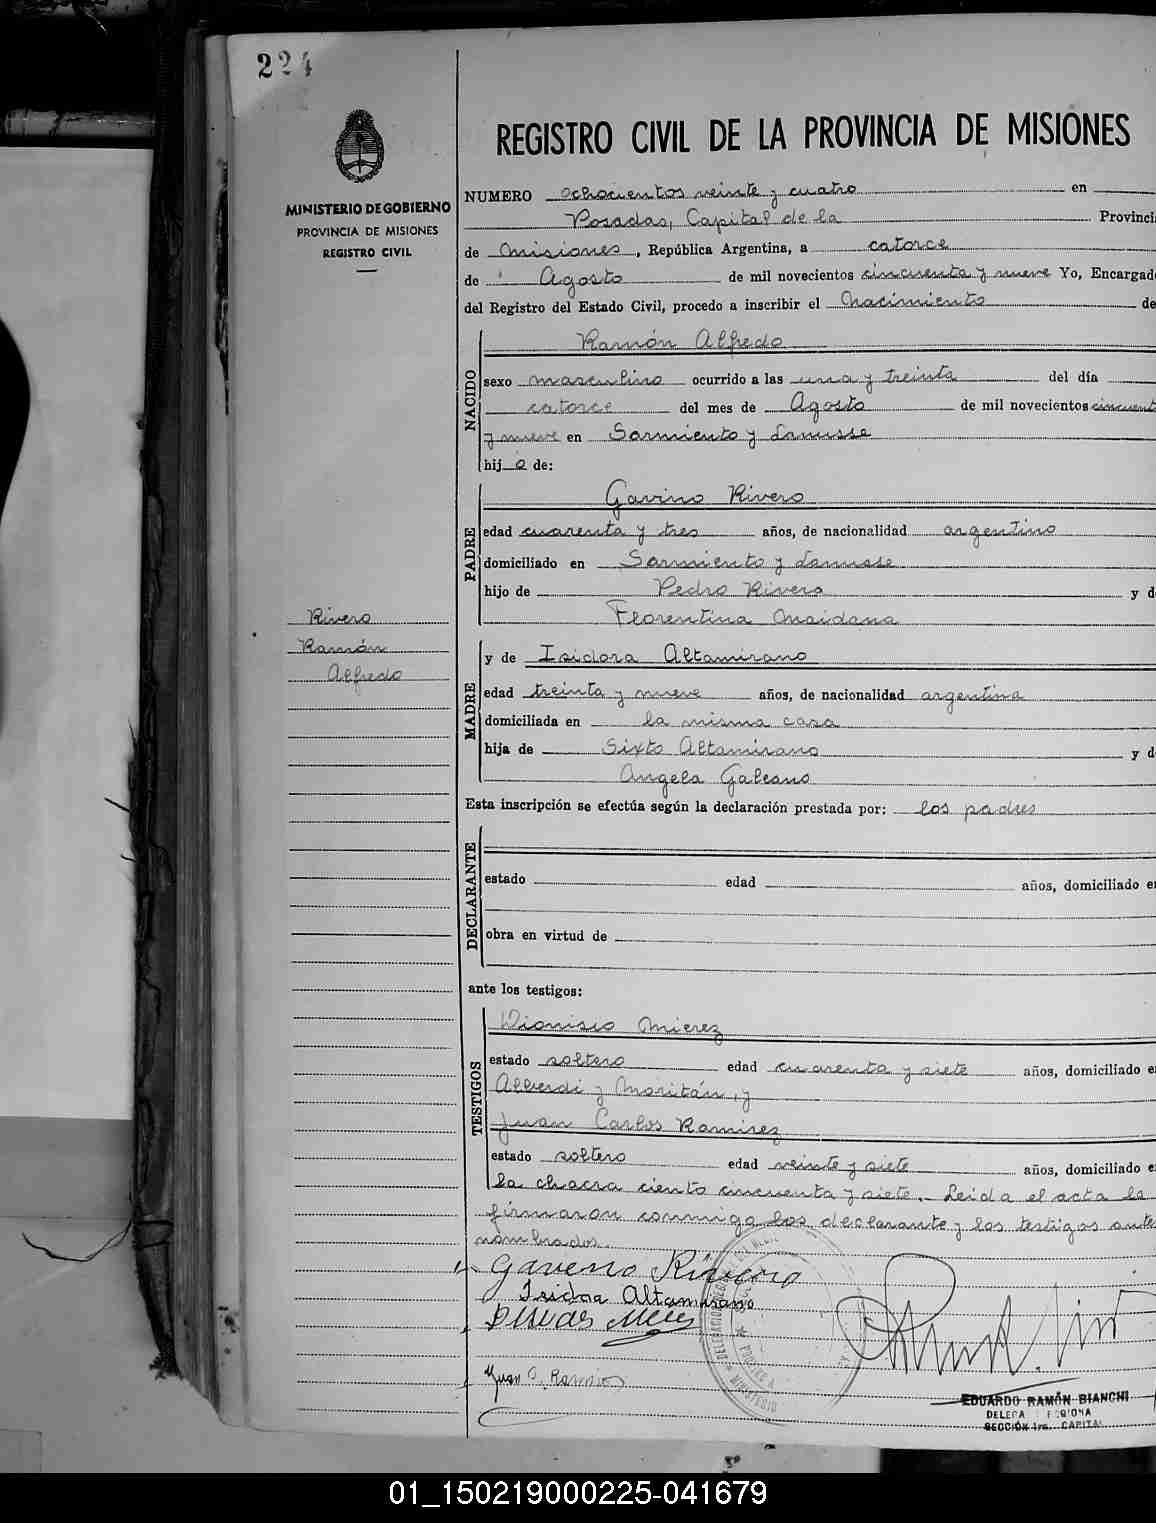 224
MINISTERIO DE GOBIERNO
PROVINCIA DE MISIONES
REGISTRO CIVIL
Rivero
Ramón
Alfredo
REGISTRO CIVIL DE LA PROVINCIA DE MISIONES
NUMERO ochocientos veinte y cuatro en
Posadas, Capital de la Provinci
de Misiones, República Argentina, a catorce
de Agosto de mil novecientos cincuenta y nueve Yo, Encargad
del Registro del Estado Civil, procedo a inscribir el Nacimiento de
NACIDO
Ramón Alfredo
sexo masculino ocurrido a las una y treinta del día
catorce del mes de Agosto de mil novecientos cincuent
y nueve en Sarmiento y Lanusse
hij o de:
PADRE
Gavino Rivero
edad cuarenta y tres años, de nacionalidad argentino
domiciliado en Sarmiento y Lanusse
hijo de Pedro Rivero y d
Florentina Maidana
MADRE
y de Isidora Altamirano
edad treinta y nueve años, de nacionalidad argentina
domiciliada en la misma casa
hija de Sixto Altamirano y d
Angela Galeano
Esta inscripción se efectúa según la declaración prestada por: los padres
DECLARANTE
estado edad años, domiciliado e
obra en virtud de
ante los testigos:
TESTIGOS
Dionisio Mierez
estado soltero edad cuarenta y siete años, domiciliado e
Alberdi y Moritán, y
Juan Carlos Ramirez
estado soltero edad veinte y siete años, domiciliado e
la chacra ciento cincuenta y siete.- Leida el acta la
firmaron conmigo los declarante y los testigos ante
nombrados.
Gaveno Rivero
Isidora Altamirano
Juan C. Ramirez
EDUARDO RAMÓN BIANCHI
SECCIÓN 1ra. CAPITAL
01_150219000225-041679